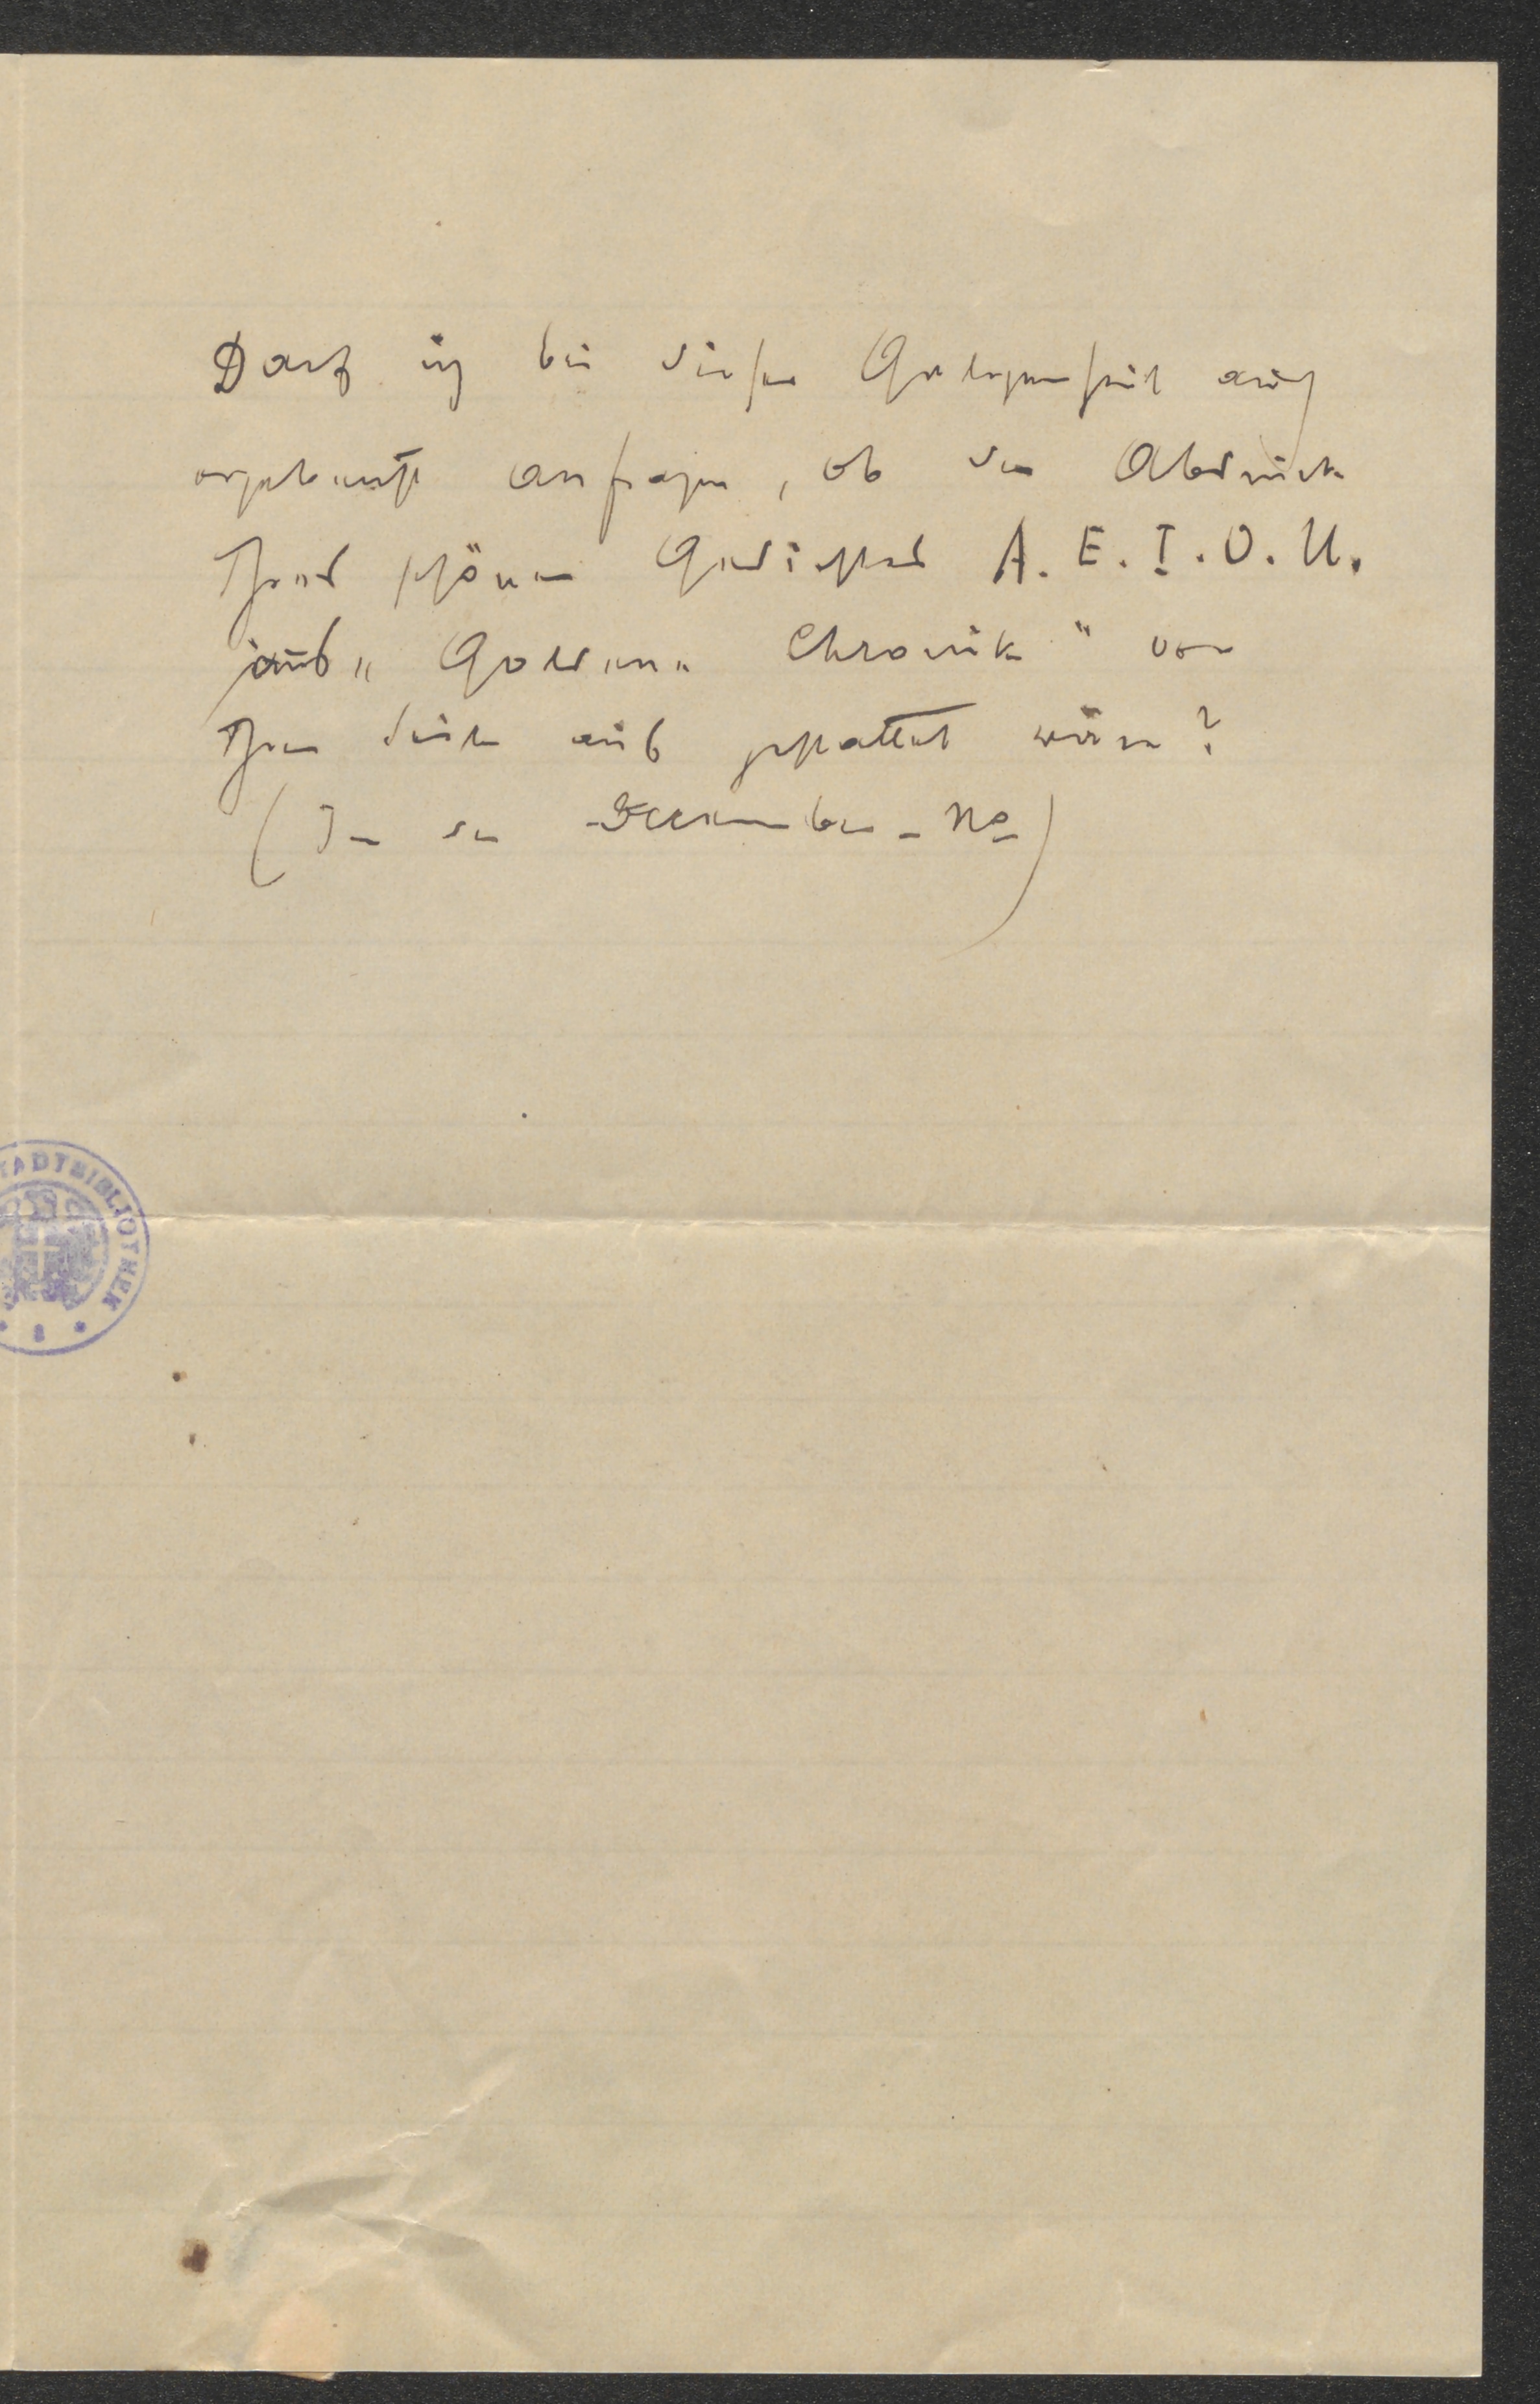 Darf ich bei dieser Gelegenheit auch
ergebenst anfragen, ob der Abdruck
Ihres schönen Gedichtes A. E. I. O. U.
aus „Goldene Chronik" von
Ihrer Seite aus gestattet wäre?
(In der December-No)
STADTBIBLIOTHEK